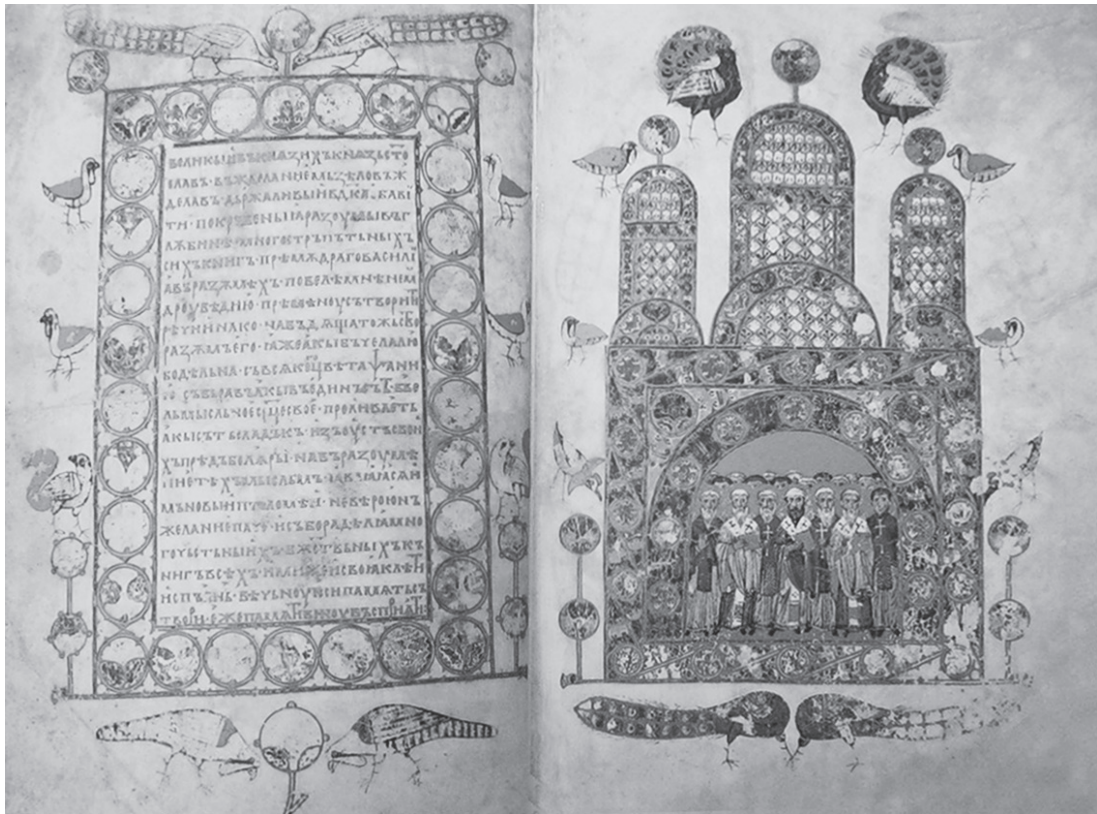 ВЕЛИКЫИ ВЪ КНѦЗИХЪ КНѦЗЬ СТО
СЛАВЪ · ВЪЖДЕЛАНИЕМЬ ЗѢЛО ВЪЖ
ДЕЛАВЪ ДЬРЖАЛИВЫИ ВЛДКА ОБАВИ
ТИ · ПОКРЪВЕНЫIѦ РАЗОУМЫ ВЪ ГЛ
ѪБИНѢ · МНОГОСТРЪПЪТЬНЫХЪ
СИХЪ КНИГ · ПРѢМѪДРАГО ВАСИЛИ
ІА ВЪ РАЗѪМѢХЪ · ПОВЕЛѢ МЪНѢ НЕМ
ѪДРОУВѢДИЮ · ПРѢМѢНОУ СЪТВОРИТИ
РѢЧИ ИНАКО · НАБЪДѦЩА ТОЖЬСТВО
РАЗѪМЪ ЕГО · ІАЖЕ АКЫ БЪЧЕЛА ЛЮ
БОДѢЛЬНА · СЪ ВСѦКОГО ЦВѢТА ПСАНИ
Ю СЪБЬРАВЪ · АКЫ ВЪ ЕДИНЪ СЪТЪ · ВЪ ВЕ
ЛЬМЫСЛЬНОЕ СРДЦЕ СВОЕ · ПРОЛИВАЕТЬ
АКЫ СЪТЪ СЛАДЪКЪ · ИЗ ОУСТЪ СВОИ
ХЪ ПРѢДЪ БОЛѦРЫ · НА ВЪРАЗОУМѢ
НИЕ ТѢХЪ МЫСЛЬМЪ · ІАВЛѦІАСѦ И
МЪ НОВЫИ ПТОЛОМѢИ · НЕ ВѢРОЮ НЪ
ЖЕЛАНИЕМЬ ПАЧЕ · И СЪБОРА ДѢЛѦ МНО
ГОЧЬСТЬНЫИХЪ БЖСТВЬНЫХЪ КЪ
НИГЪ ВСѢХЪ · ИМИЖЕ И СВОѦ КЛѢТИ
ИСПЪЛНЬ · ВѢЧЬНОУЮ СИ ПАМѦТЬ СЪ
ТВОРИ · ЮЖЕ ПАМѦТИ ВИНОУ ВЪСПРИѦТИ